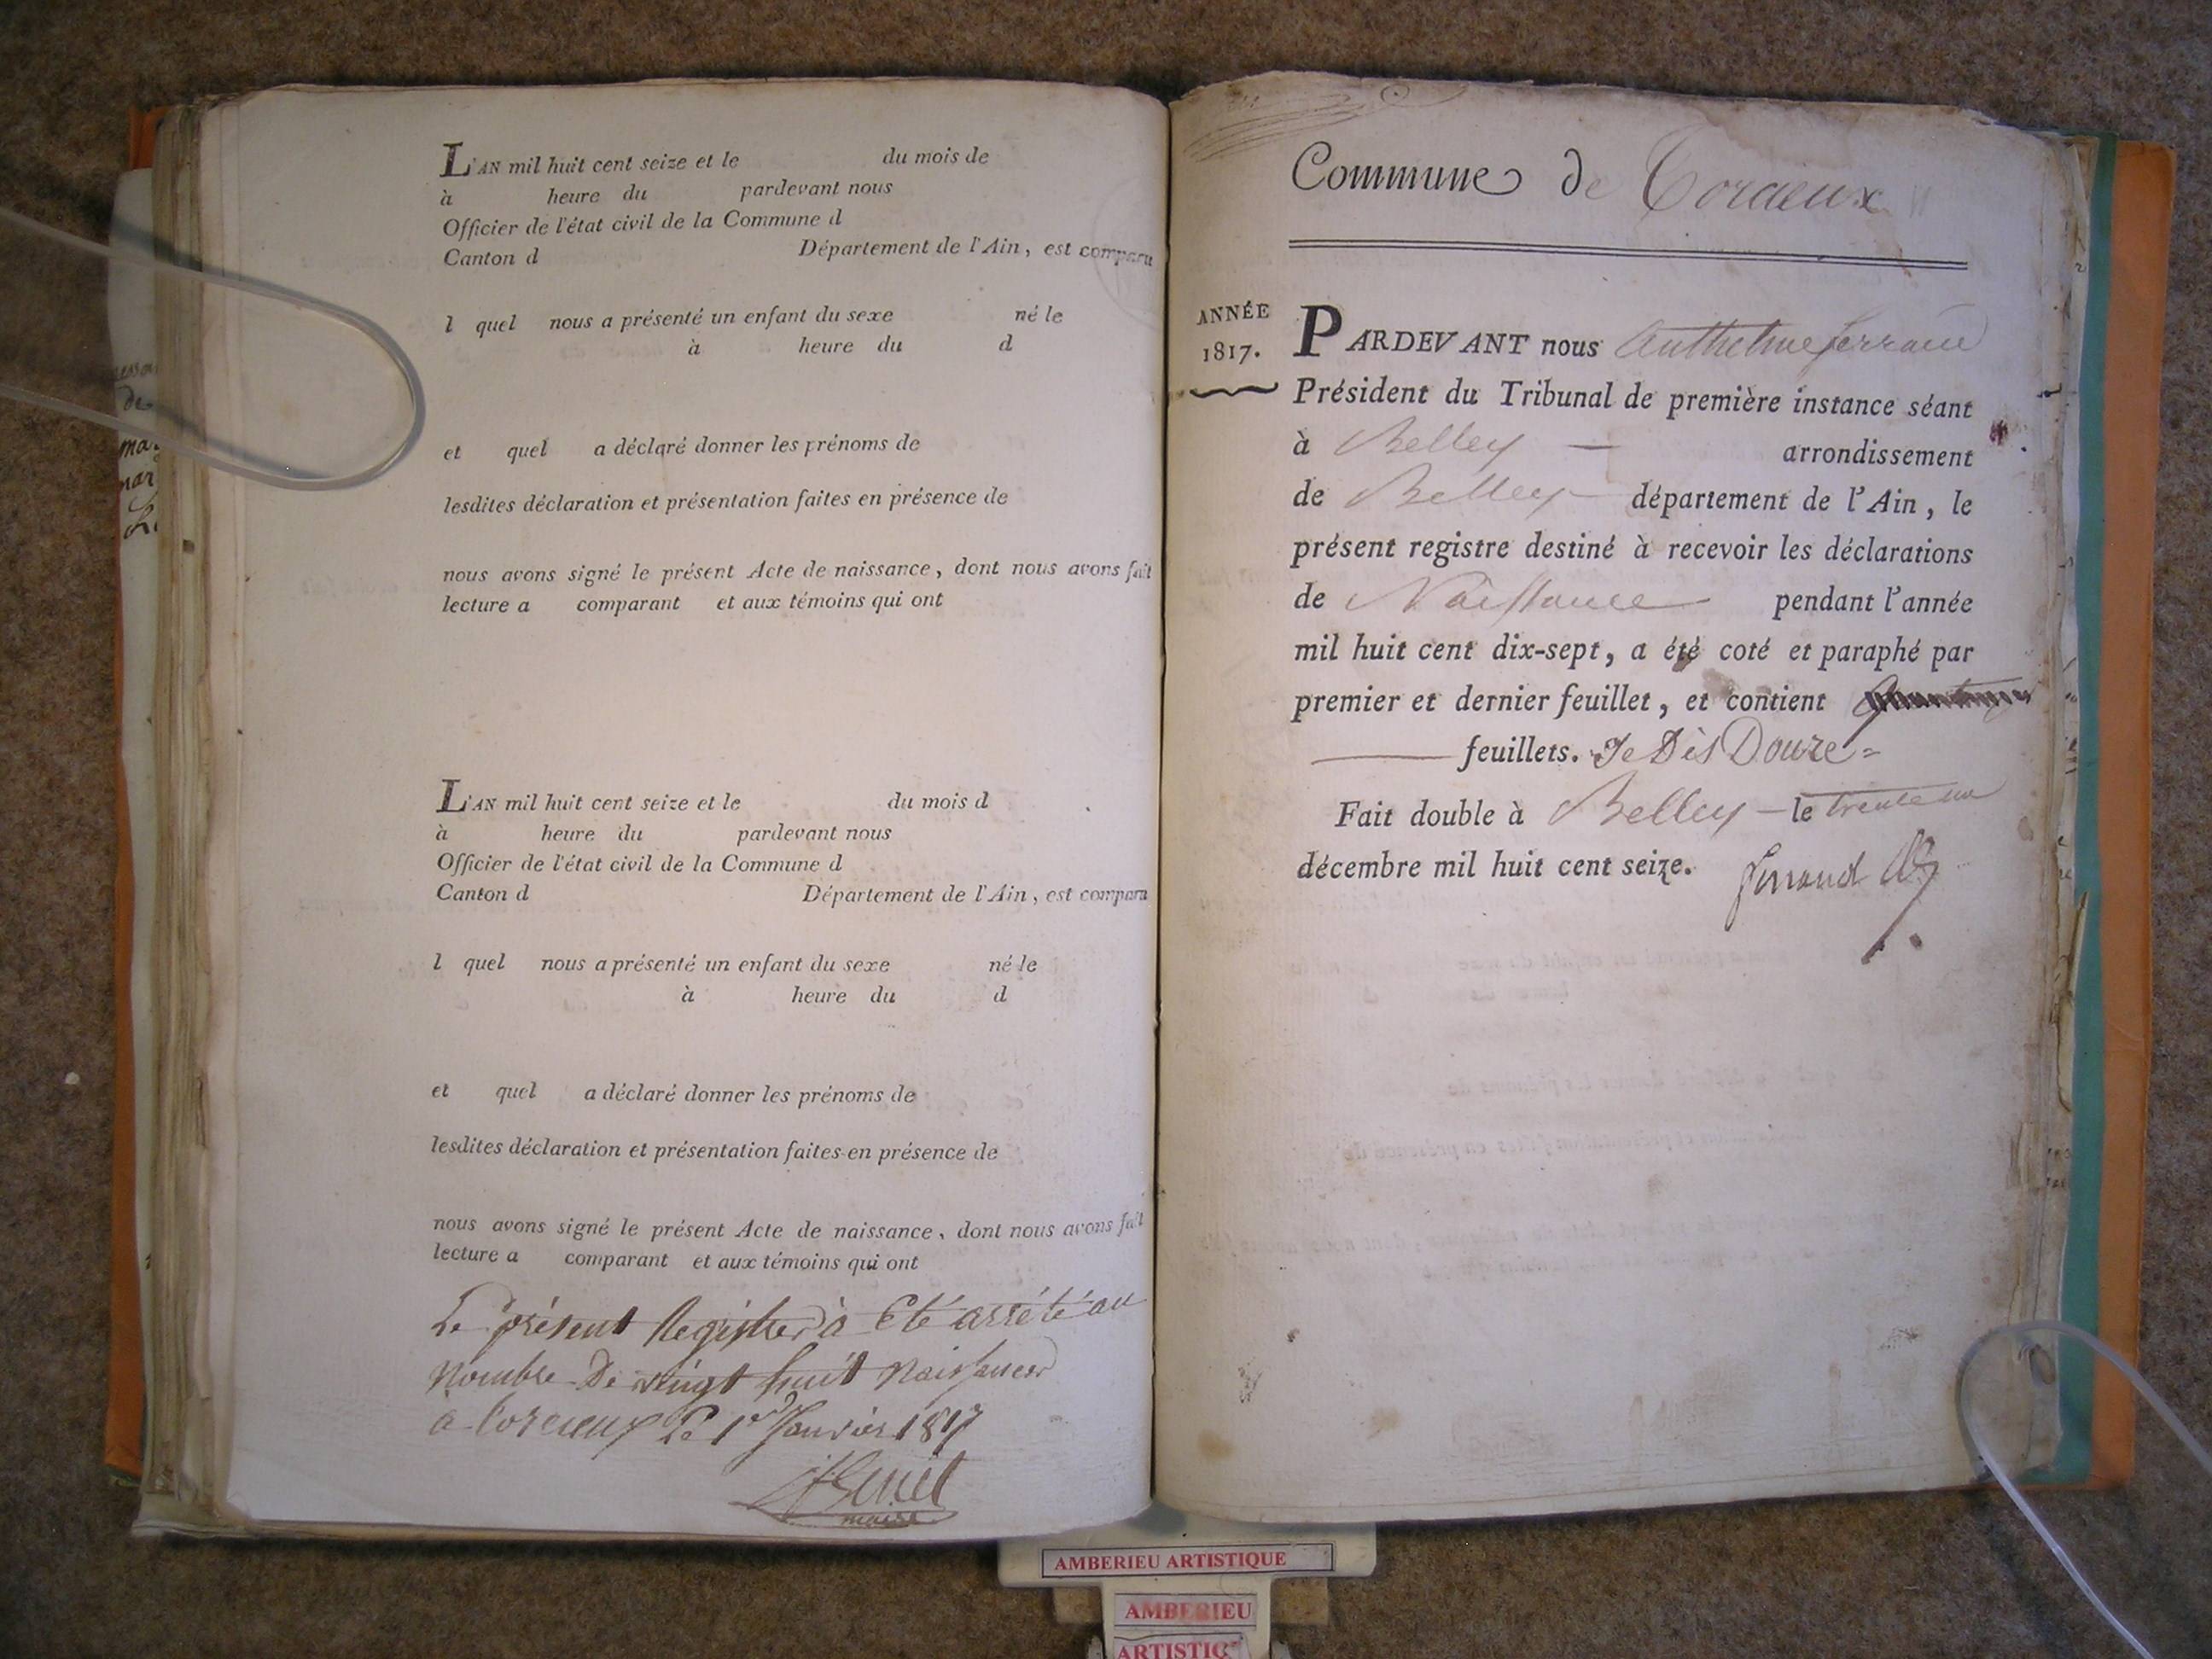 L'AN mil huit cent seize et le du mois de
à heure du pardevant nous
Officier de l'état civil de la Commune d
Canton d Département de l'Ain, est comparu
l quel nous a présenté un enfant du sexe né le
à heure du d
et quel a déclaré donner les prénoms de
lesdites déclaration et présentation faites en présence de
nous avons signé le présent Acte de naissance, dont nous avons fait
lecture a comparant et aux témoins qui ont
L'AN mil huit cent seize et le du mois d
à heure du pardevant nous
Officier de l'état civil de la Commune d
Canton d Département de l'Ain, est comparu
l quel nous a présenté un enfant du sexe né le
à heure du d
et quel a déclaré donner les prénoms de
lesdites déclaration et présentation faites en présence de
nous avons signé le présent Acte de naissance, dont nous avons fait
lecture a comparant et aux témoins qui ont
Le présent Registre à été arrété au
nombre De vingt huit Naissances
à torcieux Le 1er Janvier 1817
maire
Commune de Torcieux
ANNÉE
1817.
PARDEVANT nous Anthelme ferrand
Président du Tribunal de première instance séant
à Belley — arrondissement
de Belley département de l'Ain, le
présent registre destiné à recevoir les déclarations
de Naissance pendant l'année
mil huit cent dix-sept, a été coté et paraphé par
premier et dernier feuillet, et contient
feuillets. Je Dis Douze =
Fait double à Belley — le trente un
décembre mil huit cent seize. ferrand
AMBERIEU ARTISTIQUE
AMBERIEU
ARTISTIQ